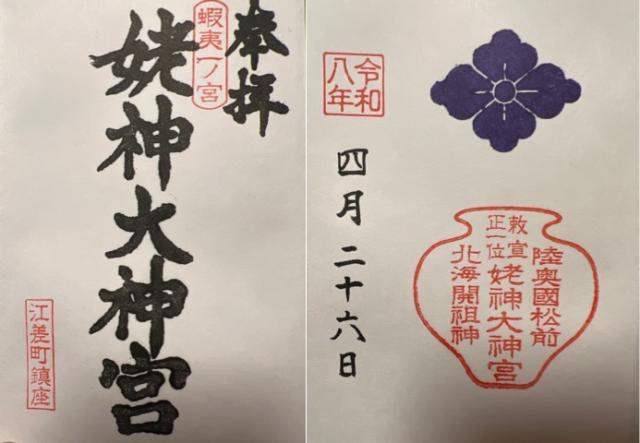 奉拝
蝦夷一ノ宮
姥神大神宮
江差町鎮座
令和
八年
四月二十六日
陸奥國松前
敕宣
正一位
姥神大神宮
北海開祖神